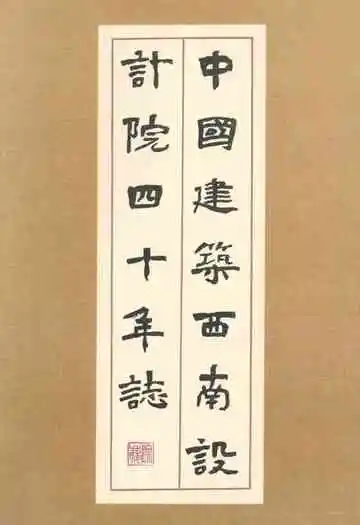 中國建築西南設
計院四十年誌